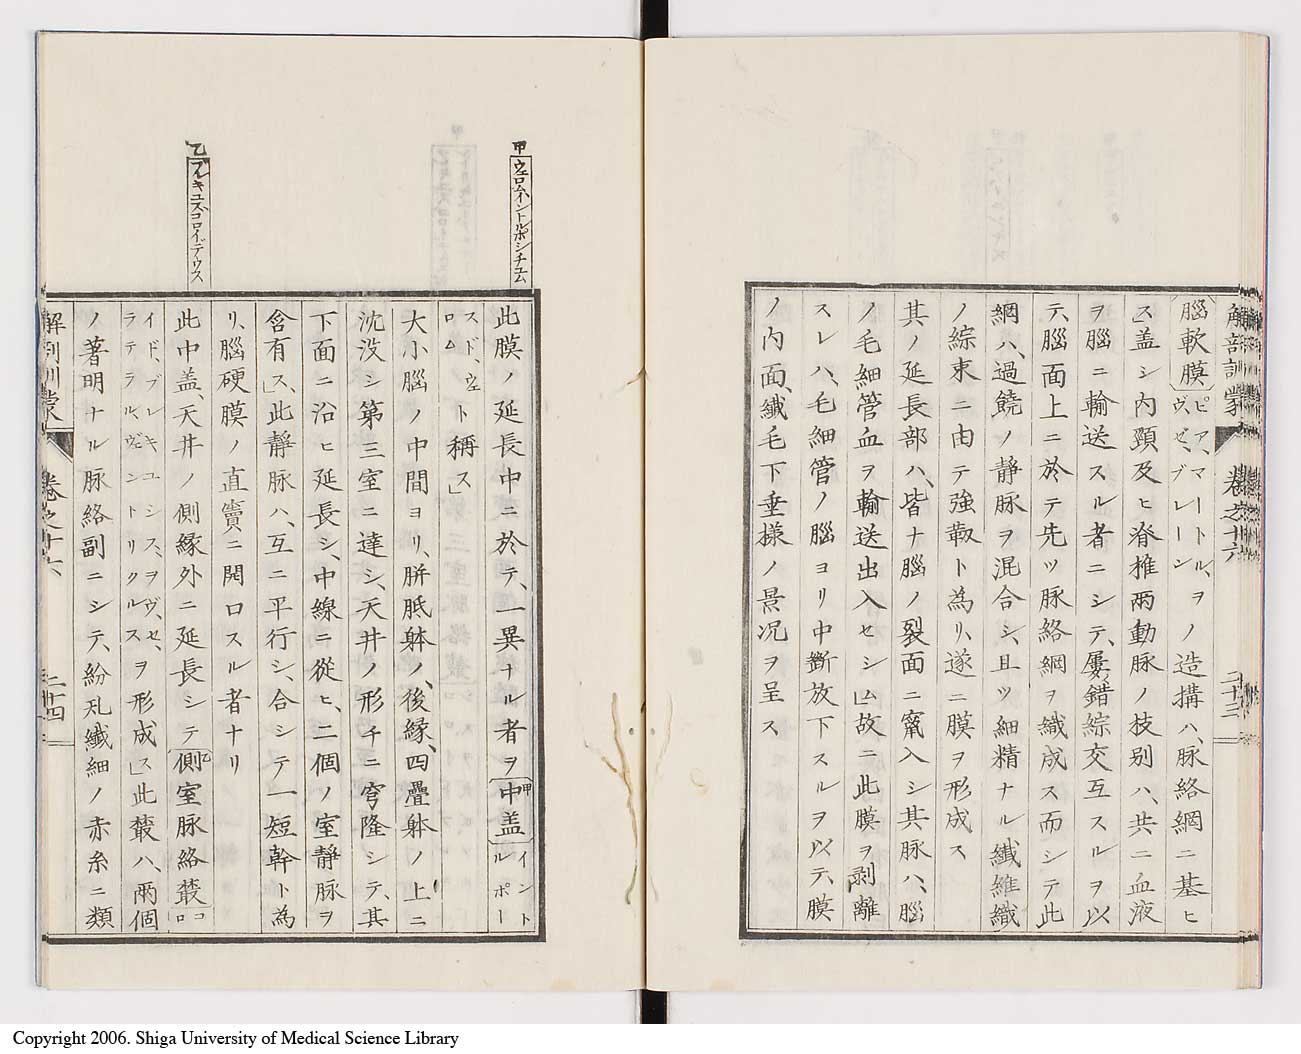 解剖訓蒙 卷之十六 二十三
腦軟膜 ピア、マートル、ヲヴ、ゼ、ブレーン ノ造搆ハ、脉絡網ニ基ヒ
ス」盖シ内頸及ヒ脊椎兩動脉ノ枝別ハ、共ニ血液
ヲ腦ニ輸送スル者ニシテ、屢錯綜交互スルヲ以
テ、腦面上ニ於テ先ツ脉絡網ヲ織成ス而シテ此
網ハ、過饒ノ静脉ヲ混合シ、且ツ細精ナル纎維織
ノ綜束ニ由テ強靱ト為リ、遂ニ膜ヲ形成ス
其ノ延長部ハ、皆ナ腦ノ裂面ニ竄入シ其脉ハ、腦
ノ毛細管血ヲ輸送出入セシム」故ニ此膜ヲ剥離
スレハ、毛細管ノ腦ヨリ中斷放下スルヲ以テ、膜
ノ内面、纎毛下垂様ノ景况ヲ呈ス
甲 ウェロムイントルポシチュム
此膜ノ延長中ニ於テ、一異ナル者ヲ甲中盖 イントルポー
スド、ウェロム ト稱ス」
大小腦ノ中間ヨリ、胼胝躰ノ、後縁、四疊躰ノ上ニ
沈没シ第三室ニ達シ、天井ノ形チニ穹隆シテ、其
下面ニ沿ヒ延長シ、中線ニ從ヒ、二個ノ室静脉ヲ
含有ス」此静脉ハ、互ニ平行シ、合シテ一短幹ト為
リ、腦硬膜ノ直竇ニ開口スル者ナリ
乙 プレキュスコロイデウス
此中盖、天井ノ側縁外ニ延長シテ乙側室脉絡叢 コロ
イド、プレキユシス、ヲヴ、ゼ、ラテラル、ヴェントリクルス ヲ形成ス」此叢ハ、兩個
ノ著明ナル脉絡副ニシテ、紛乱纎細ノ赤糸ニ類
解剖訓蒙 卷之十六 二十四
Copyright 2006. Shiga University of Medical Science Library